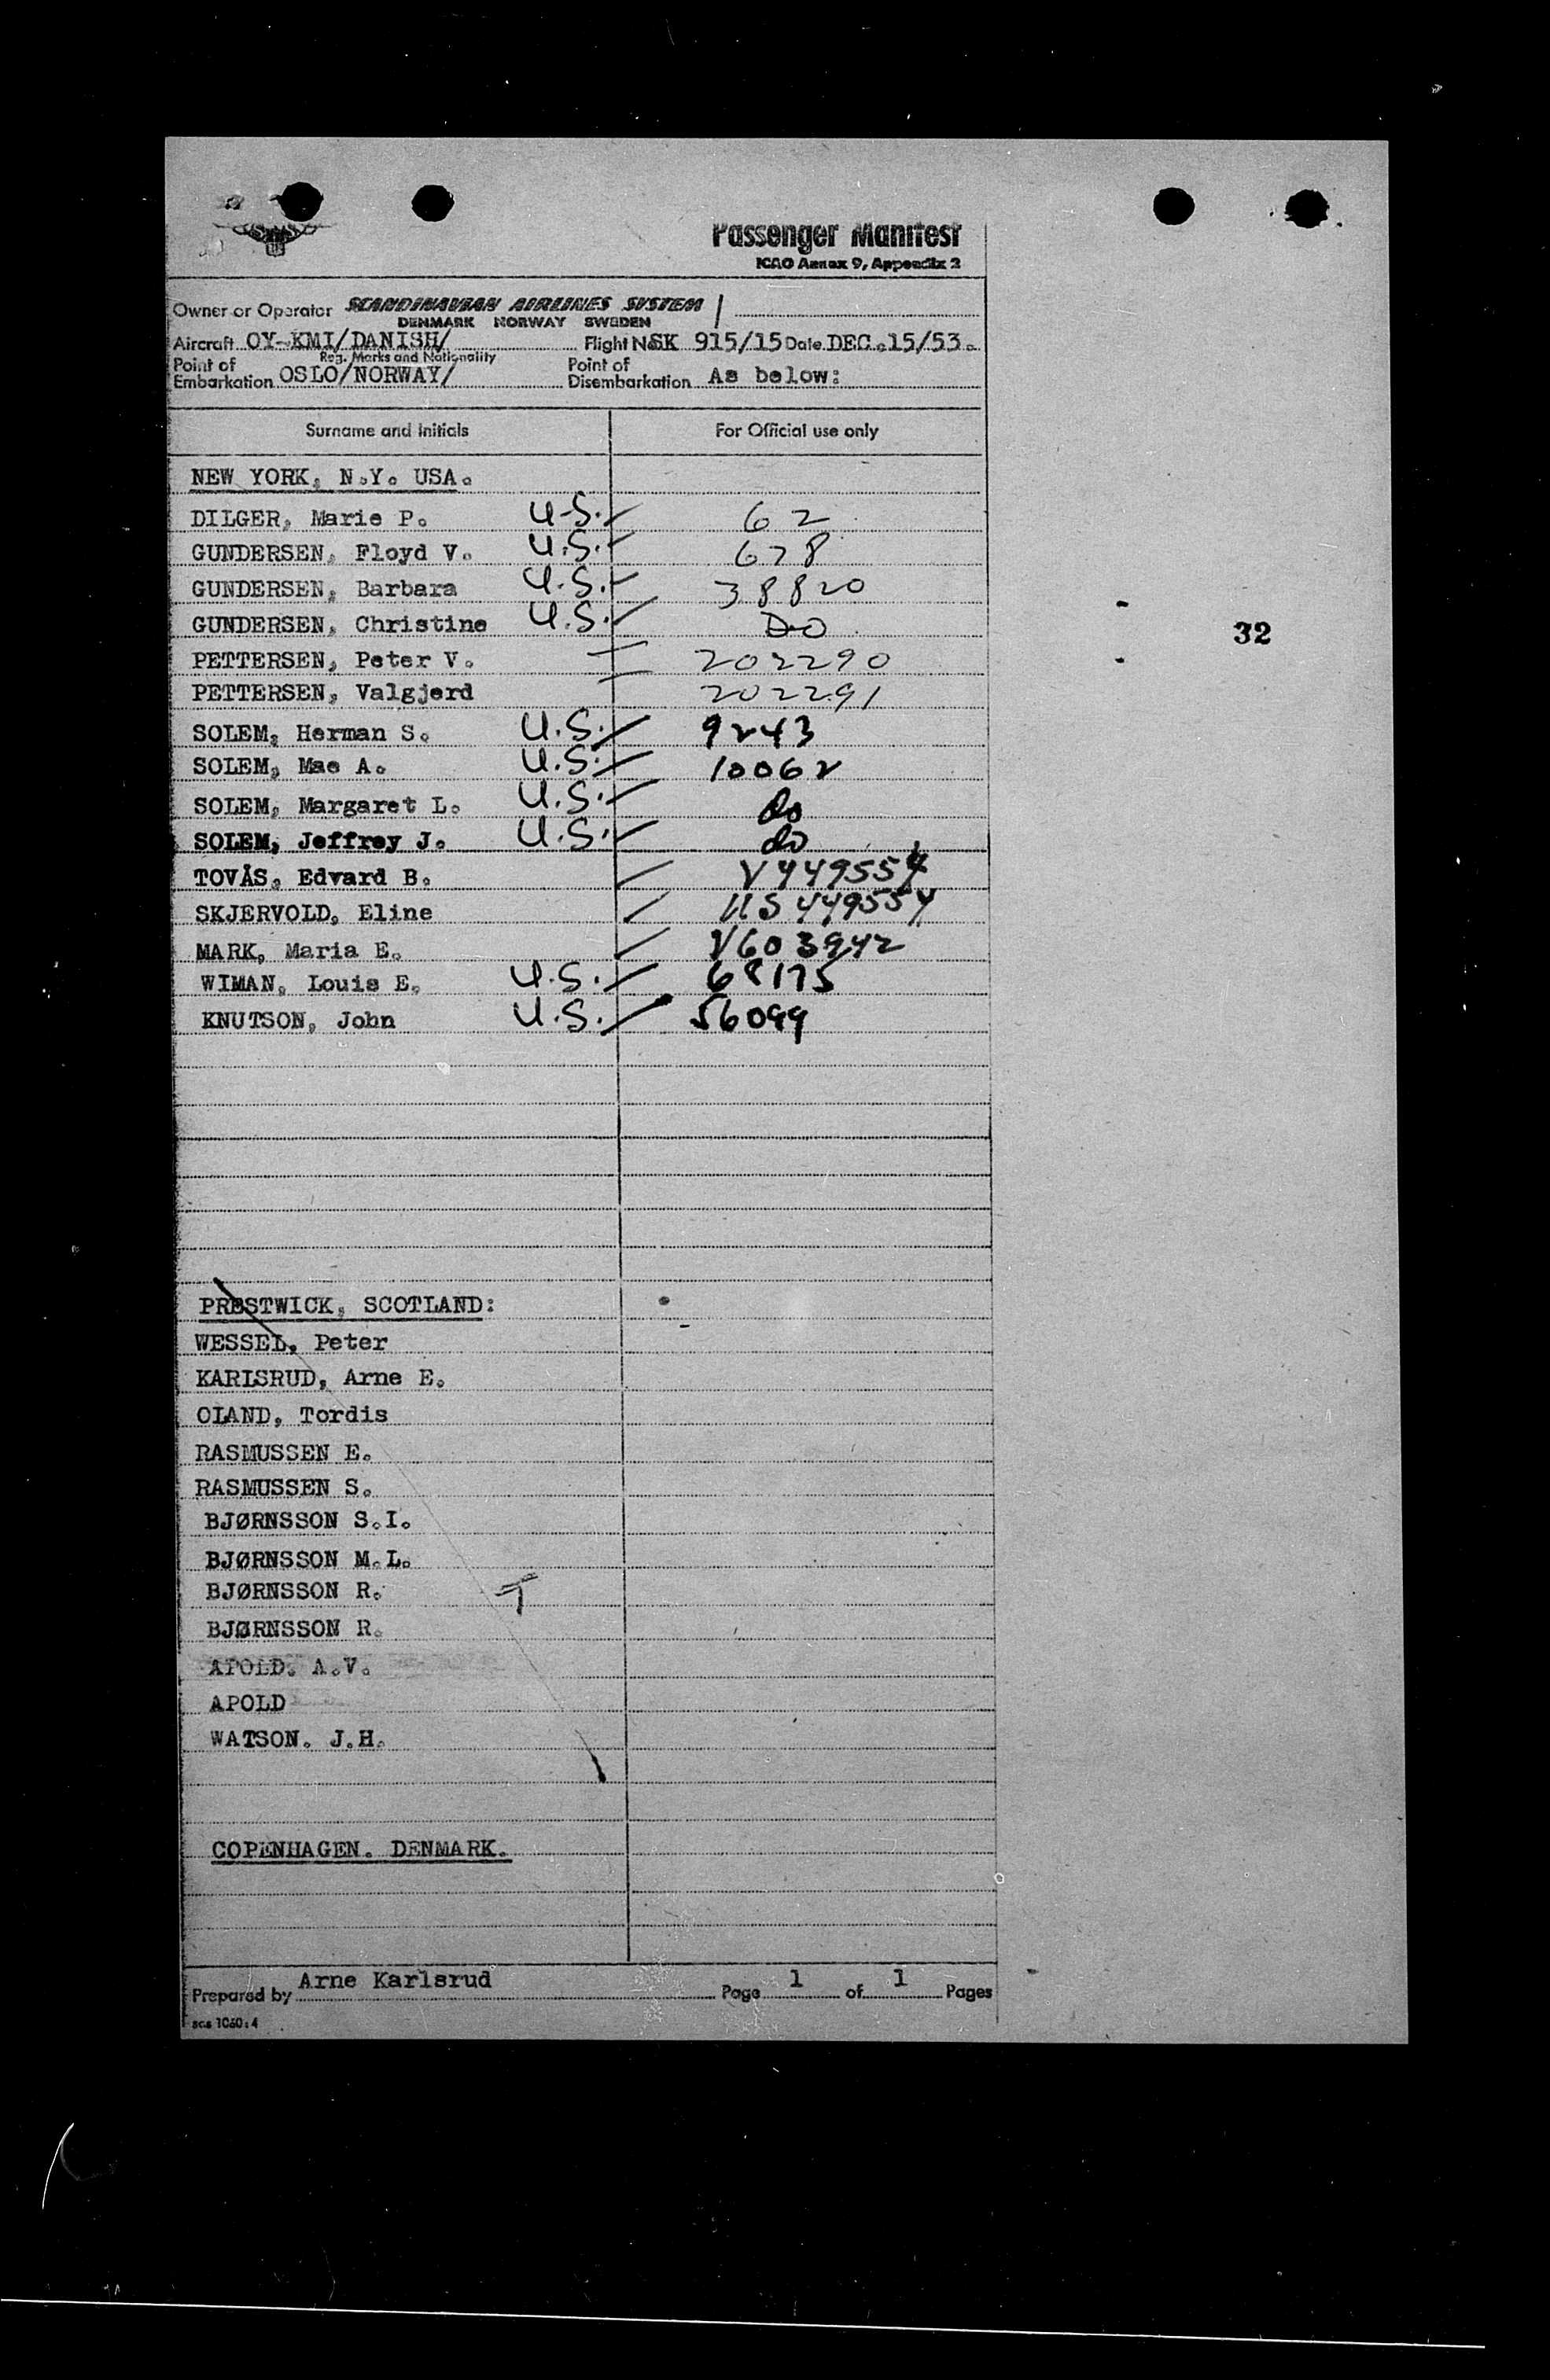 Passenger Manifest
ICAO Annex 9, Appendix 2
Owner or Operator SCANDINAVIAN AIRLINES SYSTEM
DENMARK NORWAY SWEDEN
Aircraft OY-KMI/DANISH/ Flight No SK 915/15 Date DEC.15/53.
Reg. Marks and Nationality
Point of Embarkation OSLO/NORWAY/ Point of Disembarkation As below:
Surname and Initials For Official use only
NEW YORK, N.Y. USA.
DILGER, Marie P. U.S. 62
GUNDERSEN, Floyd V. U.S. 678
GUNDERSEN, Barbara U.S. 38820
GUNDERSEN, Christine U.S. DO
32
PETTERSEN, Peter V. 202290
PETTERSEN, Valgjerd 202291
SOLEM, Herman S. U.S. 9243
SOLEM, Mae A. U.S. 10062
SOLEM, Margaret L. U.S. do
SOLEM, Jeffrey J. U.S. do
TOVÅS, Edvard B. V449554
SKJERVOLD, Eline 449554
MARK, Maria E. V603942
WIMAN, Louis E. U.S. 68175
KNUTSON, John U.S. 56099
PRESTWICK, SCOTLAND:
WESSEL, Peter
KARLSRUD, Arne E.
OLAND, Tordis
RASMUSSEN E.
RASMUSSEN S.
BJØRNSSON S.I.
BJØRNSSON M.L.
BJØRNSSON R.
BJØRNSSON R.
APOLD. A.V.
APOLD
WATSON. J.H.
COPENHAGEN. DENMARK.
Prepared by Arne Karlsrud Page 1 of 1 Pages
sas 1060:4